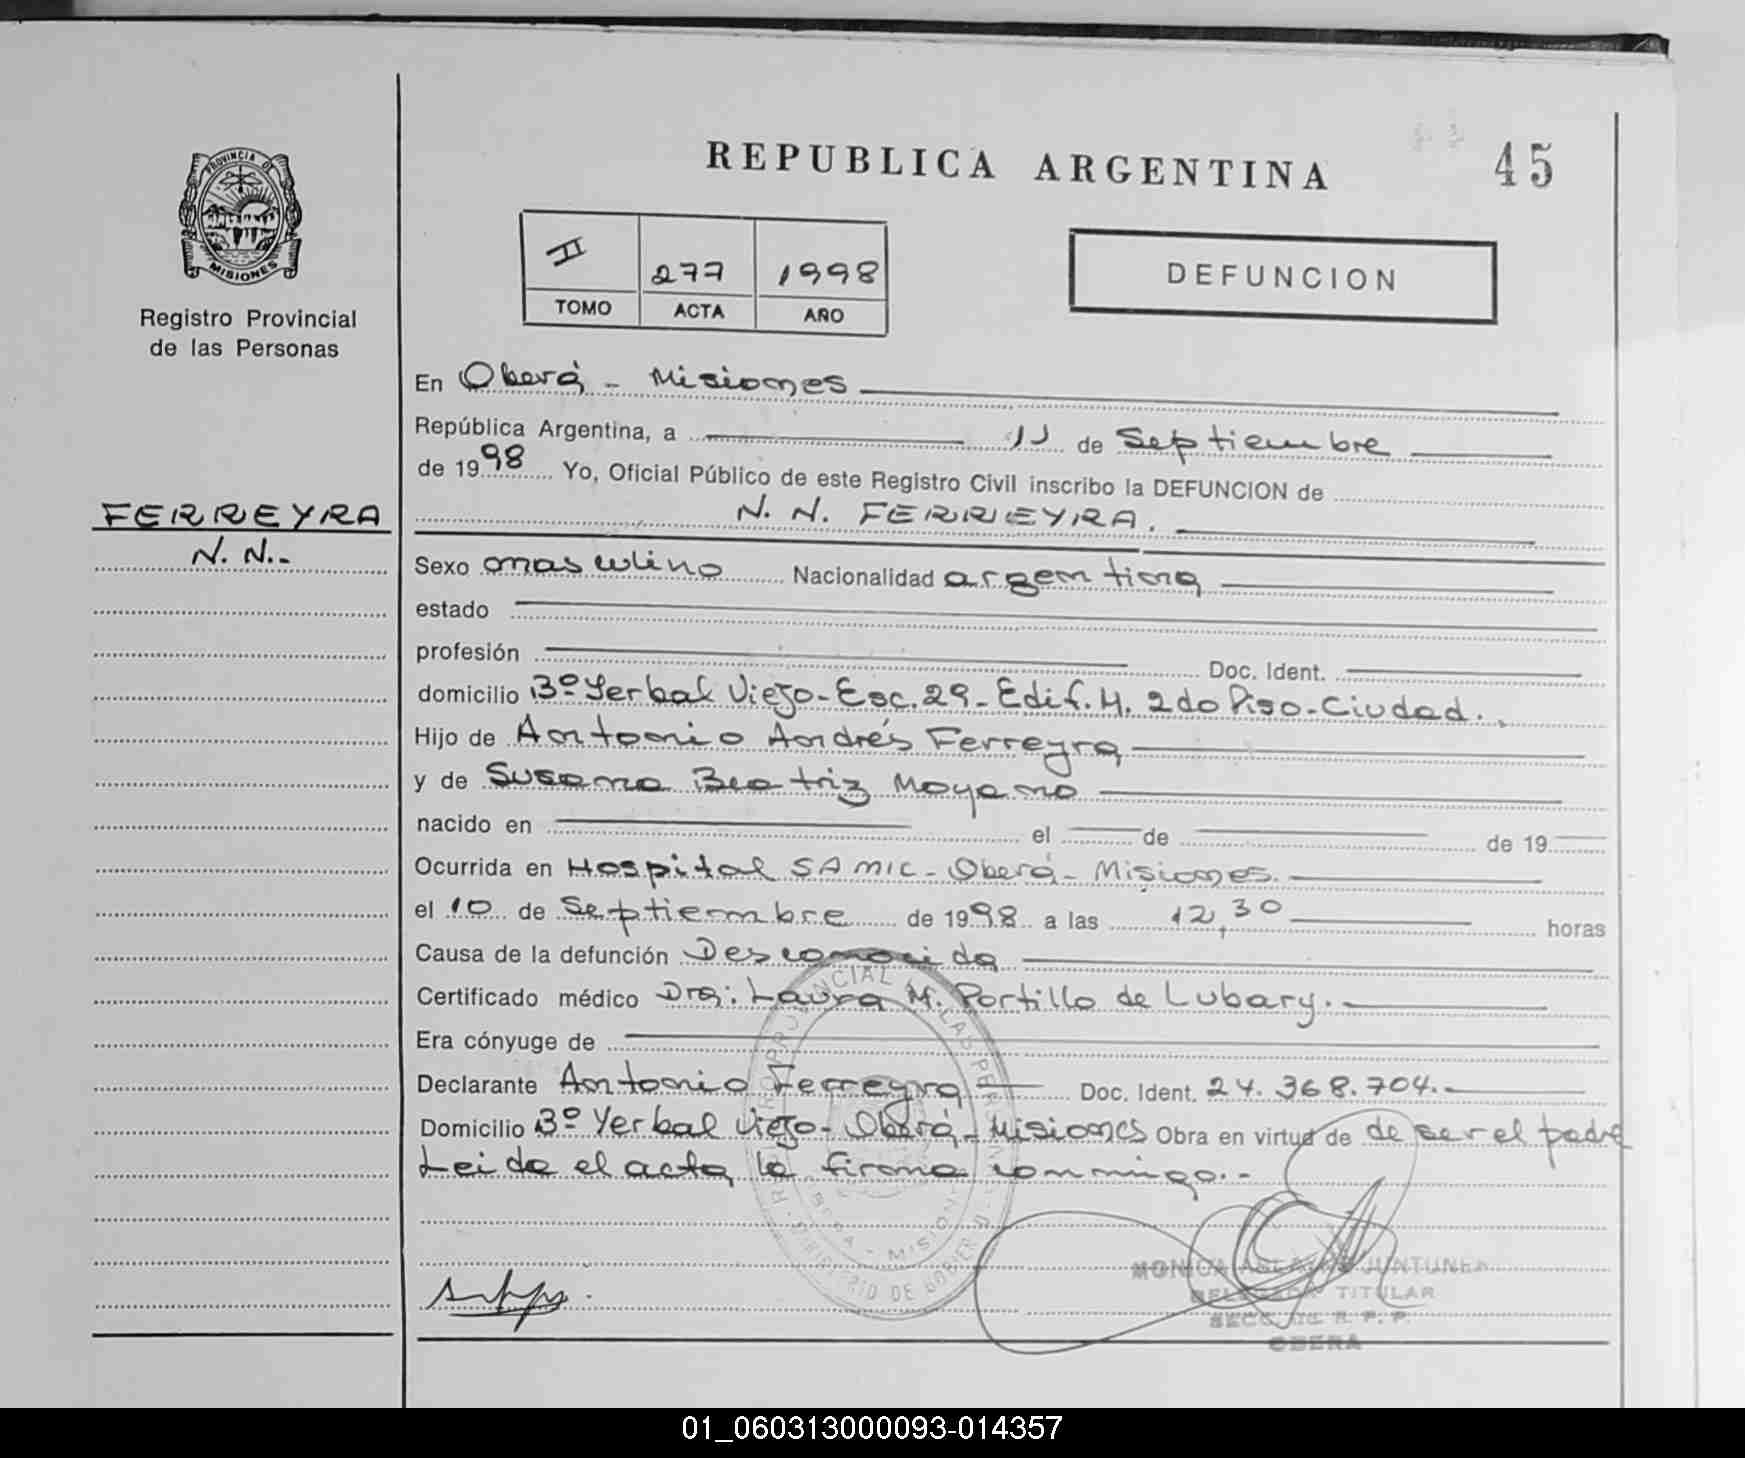 REPUBLICA ARGENTINA
45
PROVINCIA DE
MISIONES
Registro Provincial
de las Personas
II 277 1998
TOMO ACTA AÑO
DEFUNCION
FERREYRA
N. N.-
En Oberá - Misiones
República Argentina, a 11 de Septiembre
de 1998 Yo, Oficial Público de este Registro Civil inscribo la DEFUNCION de
N. N. FERREYRA.
Sexo masculino Nacionalidad argentina
estado
profesión Doc. Ident.
domicilio Bº Yerbal Viejo-Esc.29-Edif.H. 2do Piso-Ciudad.
Hijo de Antonio Andrés Ferreyra
y de Susana Beatriz Moyano
nacido en el de de 19
Ocurrida en Hospital SAMIC - Oberá - Misiones.
el 10 de Septiembre de 1998 a las 12,30 horas
Causa de la defunción Desconocida
Certificado médico Dra: Laura M. Portillo de Lubary.
Era cónyuge de
Declarante Antonio Ferreyra Doc. Ident. 24.368.704.
Domicilio Bº Yerbal Viejo - Oberá - Misiones Obra en virtud de de ser el padre
Leida el acta, la firma conmigo.-
MONICA JUNTUNEN
DELEGADA TITULAR
SECC. R. P. P.
OBERA
01_060313000093-014357